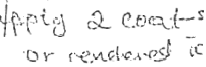 Apply 2 coats
or rendered to